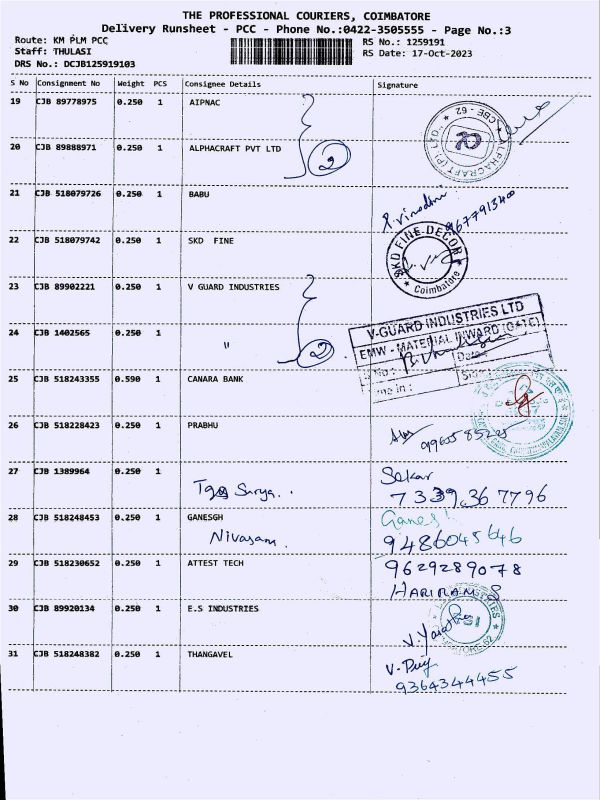 THE PROFESSIONAL COURIERS, COIMBATORE
Delivery Runsheet - PCC - Phone No.:0422-3505555 - Page No.:3
Route: KM PLM PCC
RS No.: 1259191
Staff: THULASI
RS Date: 17-Oct-2023
DRS No.: DCJB125919103
S No Consignment No Weight PCS Consignee Details Signature
19 CJB 89778975 0.250 1 AIPNAC
20 CJB 89888971 0.250 1 ALPHACRAFT PVT LTD
2
ALPHACRAFT (P) LTD
CBE - 62
21 CJB 518079726 0.250 1 BABU
22 CJB 518079742 0.250 1 SKD FINE
SKD FINE DECOR
Coimbatore
23 CJB 89902221 0.250 1 V GUARD INDUSTRIES
24 CJB 1402565 0.250 1 "
2
V-GUARD INDUSTRIES LTD
EMW - MATERIAL INWARD (GATE)
No : Date
Time In : Sign
25 CJB 518243355 0.590 1 CANARA BANK
26 CJB 518228423 0.250 1 PRABHU
27 CJB 1389964 0.250 1
Surya..
Sekar
7339367796
28 CJB 518248453 0.250 1 GANESGH
Nivasam.
Ganes
9486045646
29 CJB 518230652 0.250 1 ATTEST TECH
9629289078
HARIRAM S
30 CJB 89920134 0.250 1 E.S INDUSTRIES
31 CJB 518248382 0.250 1 THANGAVEL
9364344455